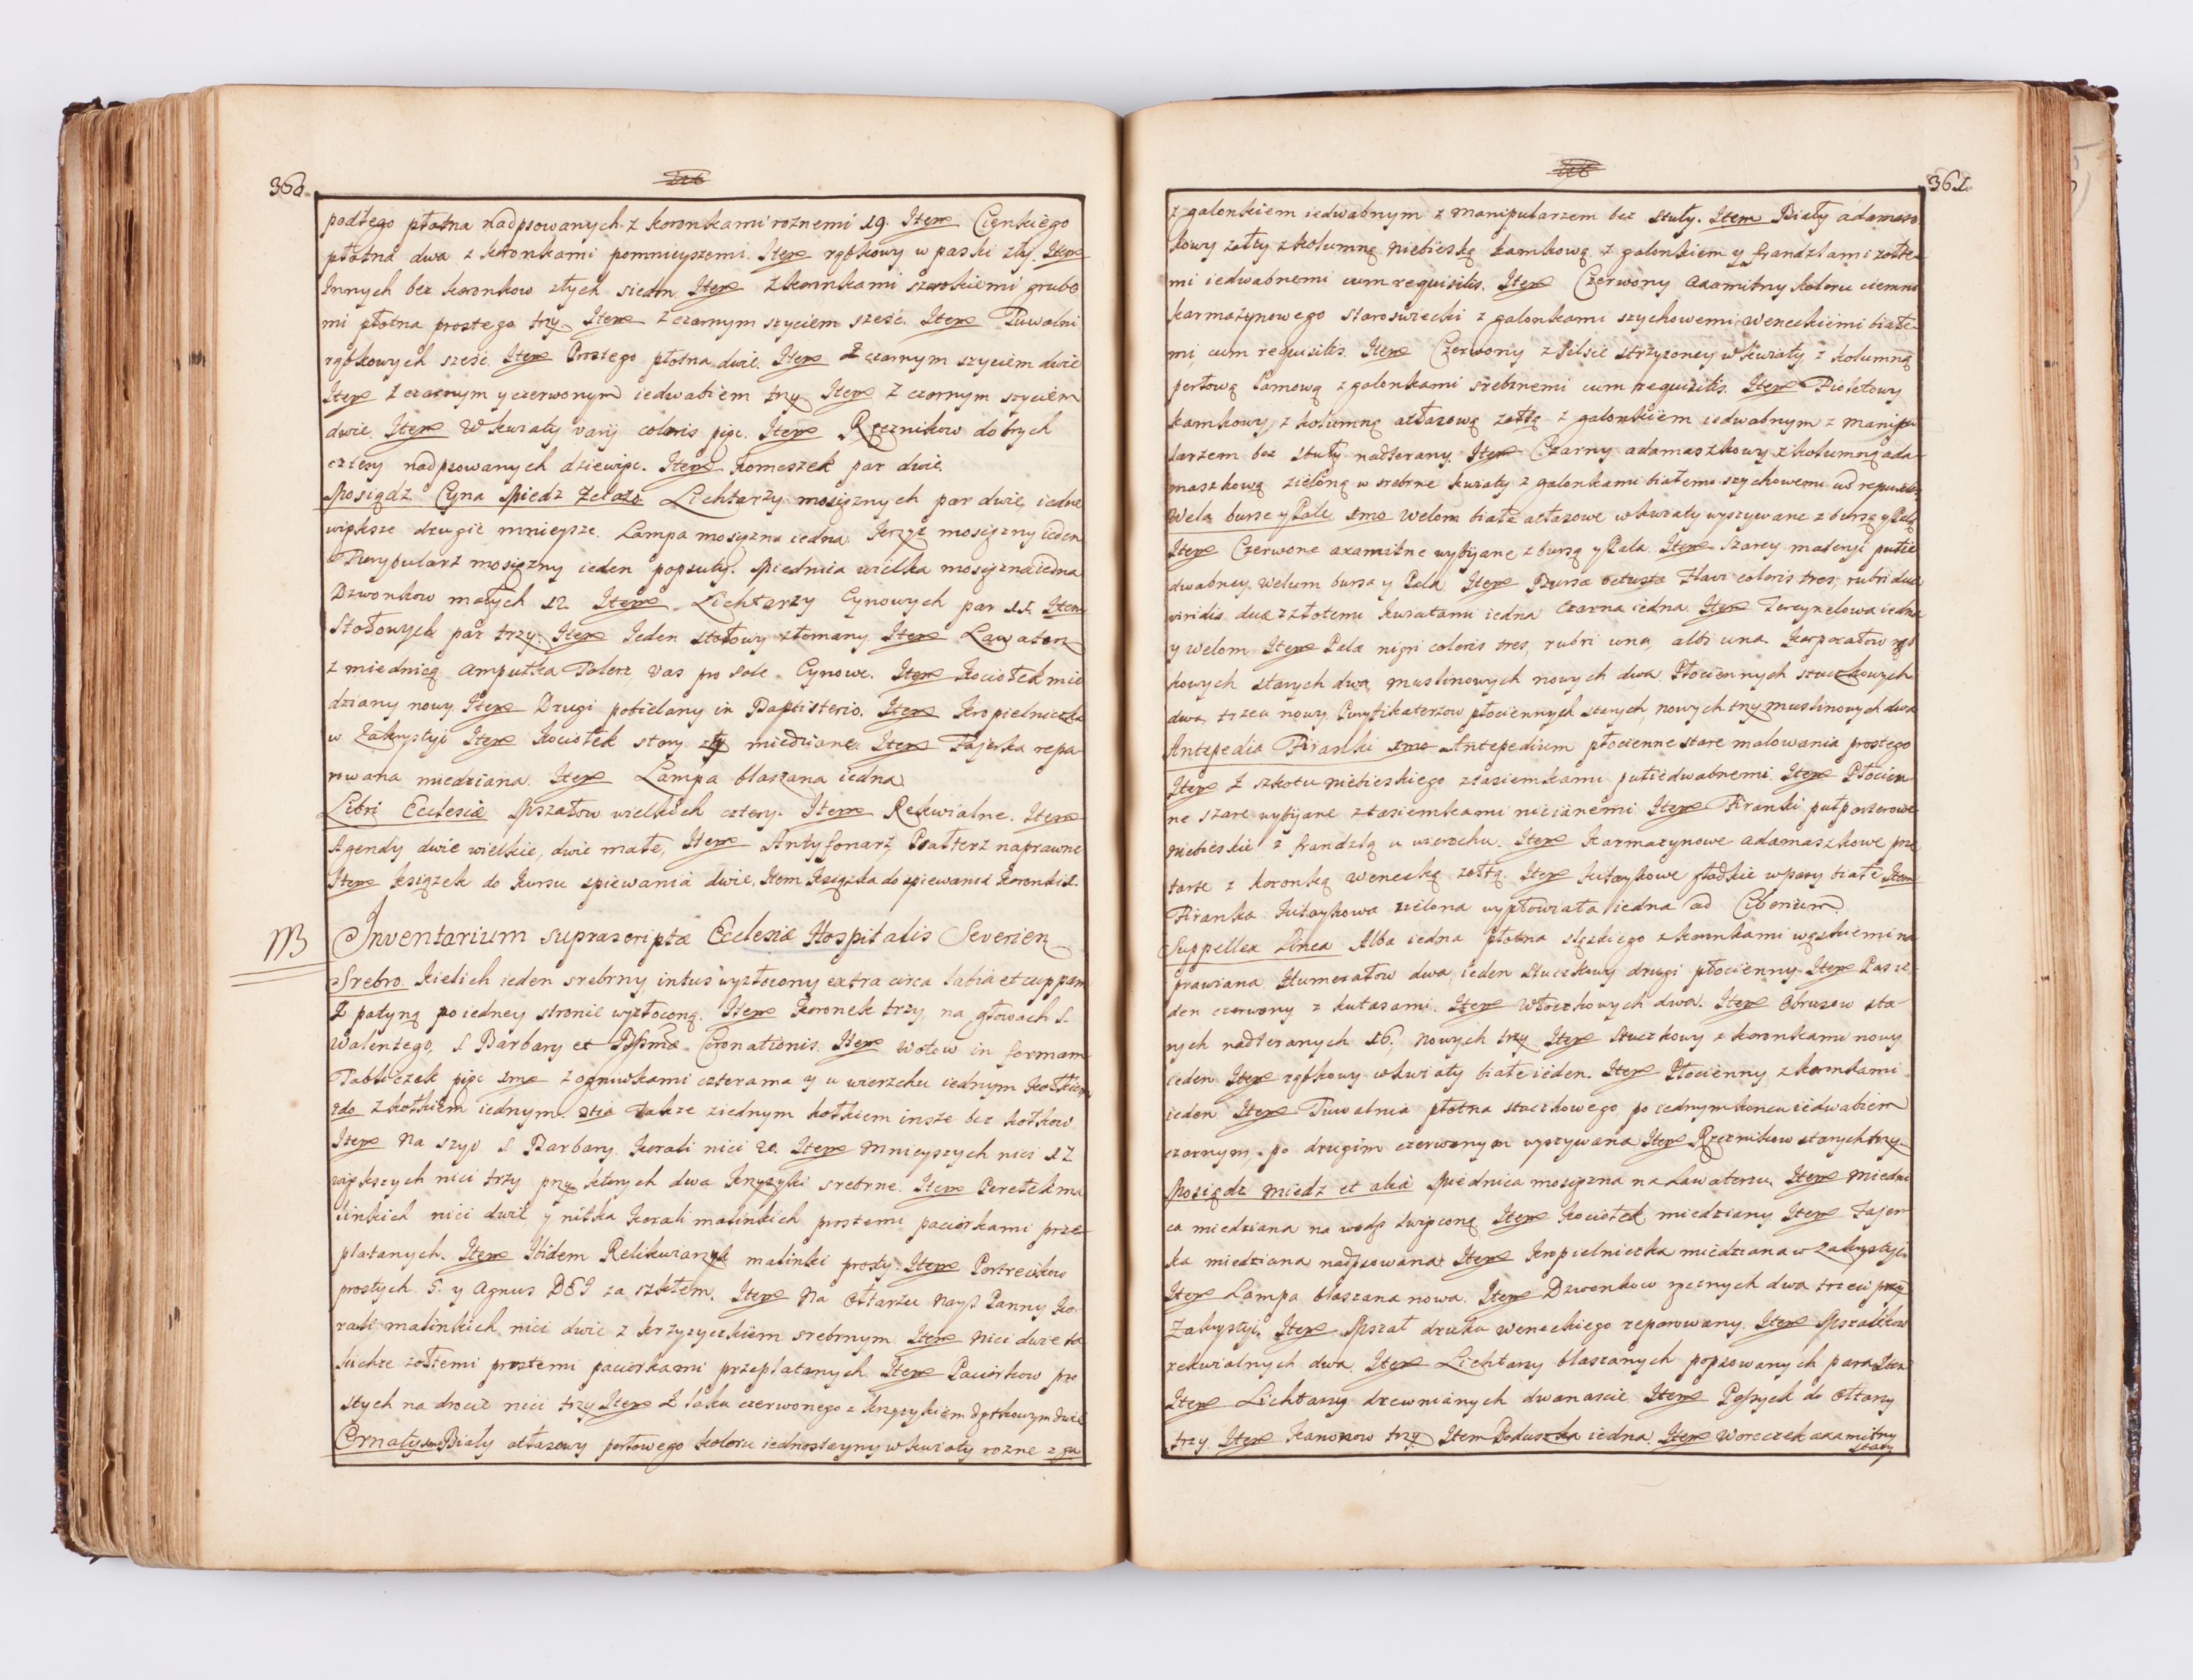 360.
podłego płotna nadpsowanych z koronkami roznemi 19. Item Cięnkiego
płotna dwa z koronkami pomnieyszemi. Item rąbkowy w paski zły. Item
Innych bez koronkow złych siedm Item z koronkami szerokiemi grube
mi płotna prostego trzy. Item z czarnym szyciem sześć. Item Tuwalni
rąbkowych sześć. Item Prostego płotna dwie. Item z czarnym szyciem dwie
Item z czarnym y czerwonym iedwabiem trzy Item z czarnym szyciem
dwie. Item w kwiaty varij coloris pięc. Item Ręcznikow dobrych
cztery nadpsowanych dziewięc. Item Komeszek par dwie.
Mosiądz Cyna Miedz Zelazo Lichtarzy mosięznych par dwie, iedne
większe drugie mnieysze. Lampa mosięzna iedna. Krzyż mosięzny ieden
Turybularz mosięzny ieden popsuty. Miednica wielka mosięzna iedna
Dzwonkow małych 12. Item Lichtarzy Cynowych par 11. Item
Stołowych par trzy. Item Ieden stołowy złomany. Item Lawaterz
z miednicą ampułka Talerz, vas pro sale Cynowe. Item Kociołek mie
dziany nowy. Item Drugi pobielany in Baptisterio. Item Kropielniczka
w Zakrystyi Item Kociołek stary zły miedziane. Item Fajerka repa
rowana miedziana. Item Lampa blaszana iedna
Libri Ecclesiæ Mszałow wielkich cztery. Item Rekwialne. Item
Agendy dwie wielkie, dwie małe, Item Antyfonarz, Psałterz naprawne
Item książek do Kursu spiewania dwie, Item Książka do spiewania Koronki 1.
NB Inventarium suprascriptæ Ecclesiæ Hospitalis Severien
Srebro. Kielich ieden srebrny intus wyzłocony extra circa labia et cuppam
Z patyną po iedney stronie wyzłoconą. Item Koronek trzy na głowach S.
Walentego, S. Barbary et Coronationis. Item Wotow in formam
Tabliczek pięc 1mo z ogniwkami czterama y u wierzchu iednym kołkiem
2do z kołkiem iednym. 3tia takze z iednym kołkiem insze bez kołkow
Item Na szyi S. Barbary Korali nici 20. Item Mnieyszych nici 17
większych nici trzy przy ktorych dwa krzyżyki srebrne. Item Perełek ma
linkich nici dwie y nitka Korali malinkich prostemi paciorkami prze
platanych. Item Ibidem Relikwiarzyk malinki prosty Item
prostych 5. y Agnus DEI za szkłem. Item Na Ołtarzu Nays Panny Ko
rali malinkich nici dwie z krzyzyczkiem srebrnym. Item Nici dwie ta
kichze zołtemi prostemi paciorkami przeplatanych. Item Paciorkow pro
stych na drocie nici trzy Item Z laku czerwonego z krzyzykiem dętkowym dwie
Ornaty Biały atłasowy perłowego koloru iednostayny w kwiaty rozne z ga
361.
z galonkiem iedwabnym z manipularzem bez stuły. Item Biały adamasz
kowy zołty z kolumną niebieską kamkową z galonkiem y frandzlami zołte
mi iedwabnemi cum requisitis. Item Czerwony axamitny koloru ciemno
karmazynowego staroswiecki z galonkami szychowemi weneckiemi białe
mi, cum requisitis. Item Czerwony z Filsie strzyzoney w kwiaty z kolumną
perłową lamową z galonkami srebrnemi cum requisitis. Item Fioletowy
kamkowy, z kolumną atłasową zołtą z galonkiem iedwabnym z manipu
larzem bez stuły nadterany. Item Czarny adamaszkowy z kolumną ada
maszkową zieloną w srebrne kwiaty z galonkami białemi szychowemi
Wela burse y Pale 1mo Welom białe atłasowe w kwiaty wyszywane z bursą y Palą
Item Czerwone axamitne wybijane z bursą y Pala. Item Szarey materyi pułie
dwabney Welum bursa y Pala Item Bursæ vetustæ Flavi coloris tres, rubri duæ
viridis duæ z złotemi kwiatami iedna Czarna iedna. Item Tercynelowa iedna
y welom. Item Pala nigri coloris tres, rubri una, albi una. Korporałow rąb
kowych starych dwa, muslinowych nowych dwa, Płociennych stuczkowych
dwa, trzeci nowy. Puryfikaterzow płociennych starych, nowych trzy muslinowych dwa
Antepedia Firanki 1mo Antepedium płocienne stare malowania prostego
Item Z szkotu niebieskiego z tasiemkami pułiedwabnemi. Item Płocien
ne szare wybijane z tasiemkami nicianemi. Item Firanki pułparterowe
niebieskie z frandzlą u wierzchu. Item Karmazynowe adamaszkowe prze
tarte z koronką wenecką zołtą. Item kitaykowe gładkie w pasy białe Item
Firanka kitaykowa zielona wypłowiała iedna ad Ciborium.
Suppellex Linea Alba iedna płotna sląskiego z koronkami wązkiemi na
prawiana. Humerałow dwa, ieden stuczkowy drugi płocienny. Item Pas ie
den czerwony z kutasami. Item Włoczkowych dwa. Item Obrusow sta
rych nadteranych 16., Nowych trzy Item stuczkowy z koronkami nowy
ieden. Item rąbkowy w kwiaty białe ieden. Item Płocienny z koronkami
ieden Item Tuwalnia płotna stuczkowego po iednym koncu iedwabiem
czarnym, po drugim czerwonym wyszywana. Item Ręcznikow starych trzy
Mosiądz Miedz et alia Miednica mosięzna na Lawaterzu. Item Miedni
ca miedziana na wodę święconą Item Kociołek miedziany Item Fajer
ka miedziana nadpsowana. Item Kropielniczka miedziana w Zakrystyi.
Item Lampa blaszana nowa. Item Dzwonkow ręcznych dwa trzeci przy
Zakrystyi. Item Mszał druku weneckiego reparowany. Item Mszalikow
rekwialnych dwa. Item Lichtarzy blaszanych popsowanych para
Item Lichtarzy drewnianych dwanascie Item do Ołtarzy
trzy. Item Kanonow trzy. Item Poduszka iedna. Item Woreczek axamitny
stary